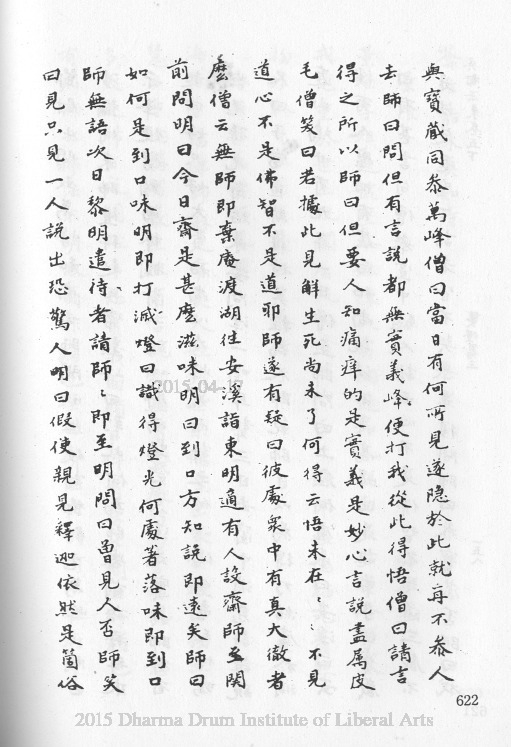 與寶藏同叅萬峰僧曰當日有何所見遂隐於此就再不叅人
去師曰問但有言說都無實義峰便打我從此得悟僧曰請言
得之所以師曰但要人知痛痒的是實義是妙心言說盡属皮
毛僧笑曰若據此見解生死尚未了何得云悟未在〻不見
道心不是佛智不是道耶師遂有疑曰彼處衆中有真大徹者
麽僧云無師即棄庵渡湖往安溪詣東明適有人設齋師至関
前問明曰今日齋是甚麽滋味明曰到口方知說即遠矣師曰
如何是到口味明即打滅燈曰識得燈光何處著落味即到口
師無語次日黎明遣侍者請師〻即至明問曰曾見人否師笑
曰見只見一人說出恐驚人明曰假使親見釋迦依然是箇俗
622
2015-04-17
2015 Dharma Drum Institute of Liberal Arts